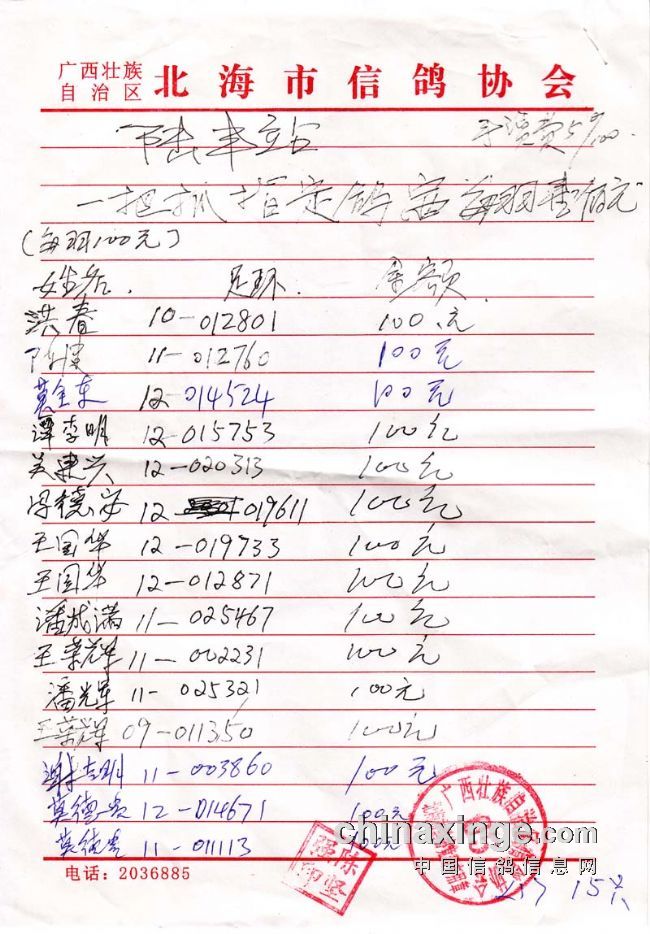 广西壮族
自治区 北海市信鸽协会
陆丰站 手续费5%
一把抓指定鸽 每羽壹佰元
(每羽100元)
姓名 足环 金额
洪春 10-012801 100元
11-012760 100元
莫全东 12-014524 100元
谭李明 12-015753 100元
吴建兴 12-020313 100元
德安 12 019611 100元
王国华 12-019733 100元
王国华 12-012871 100元
潘成满 11-025467 100元
王荣辉 11-002231 100元
潘光军 11-025321 100元
王荣辉 09-011350 100元
谢 明 11-003860 100元
莫德贵 12-014671 100元
莫德贵 11-011113 100元
chinaxinge.com
中国信鸽信息网
电话:2036885
陈坚强印
广西壮族自治区
15只